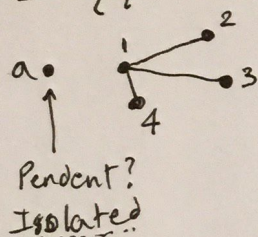 1
2
a
3
4
Pendent?
Isolated